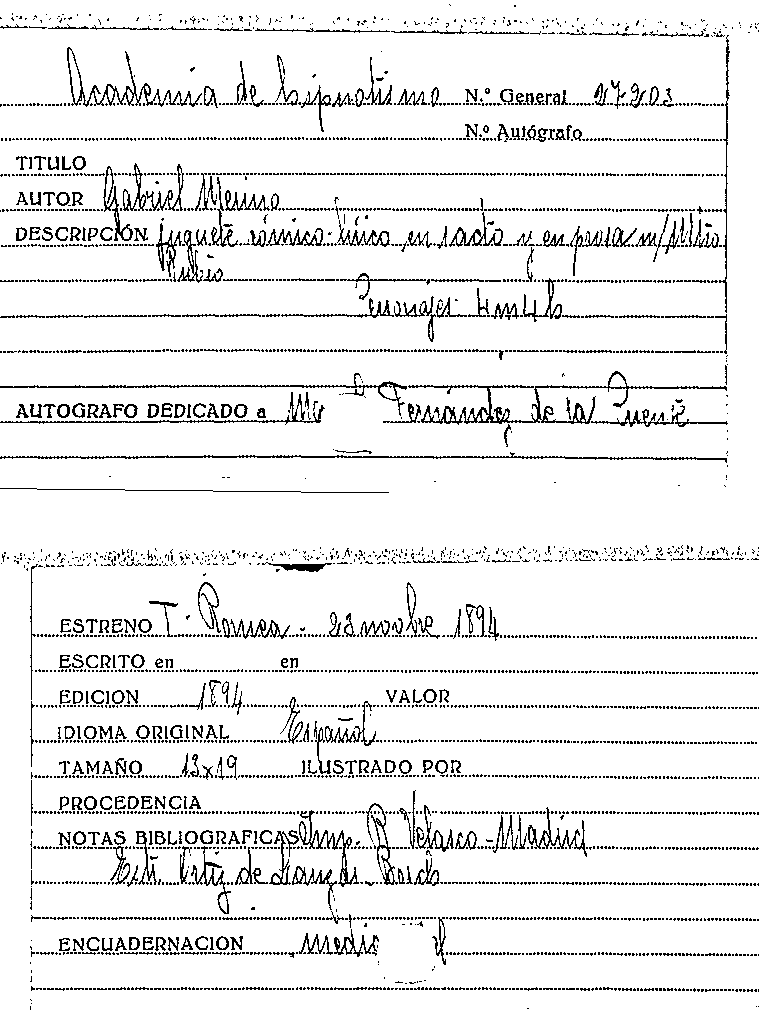 Academia de hipnotismo N.º General 27203
N.º Autógrafo
TITULO
AUTOR Gabriel Merino
DESCRIPCIÓN juguete cómico-lírico en 1 acto y en prosa m/ Mtro
Rubio
Personajes 4m4h
AUTOGRAFO DEDICADO a Fernández de la Puente
ESTRENO T. Romea - 23 novbre 1894
ESCRITO en en
EDICION 1894 VALOR
IDIOMA ORIGINAL Español
TAMAÑO 13x19 ILUSTRADO POR
PROCEDENCIA
NOTAS BIBLIOGRAFICAS Imp. R Velasco - Madrid
Ortiz de
ENCUADERNACION